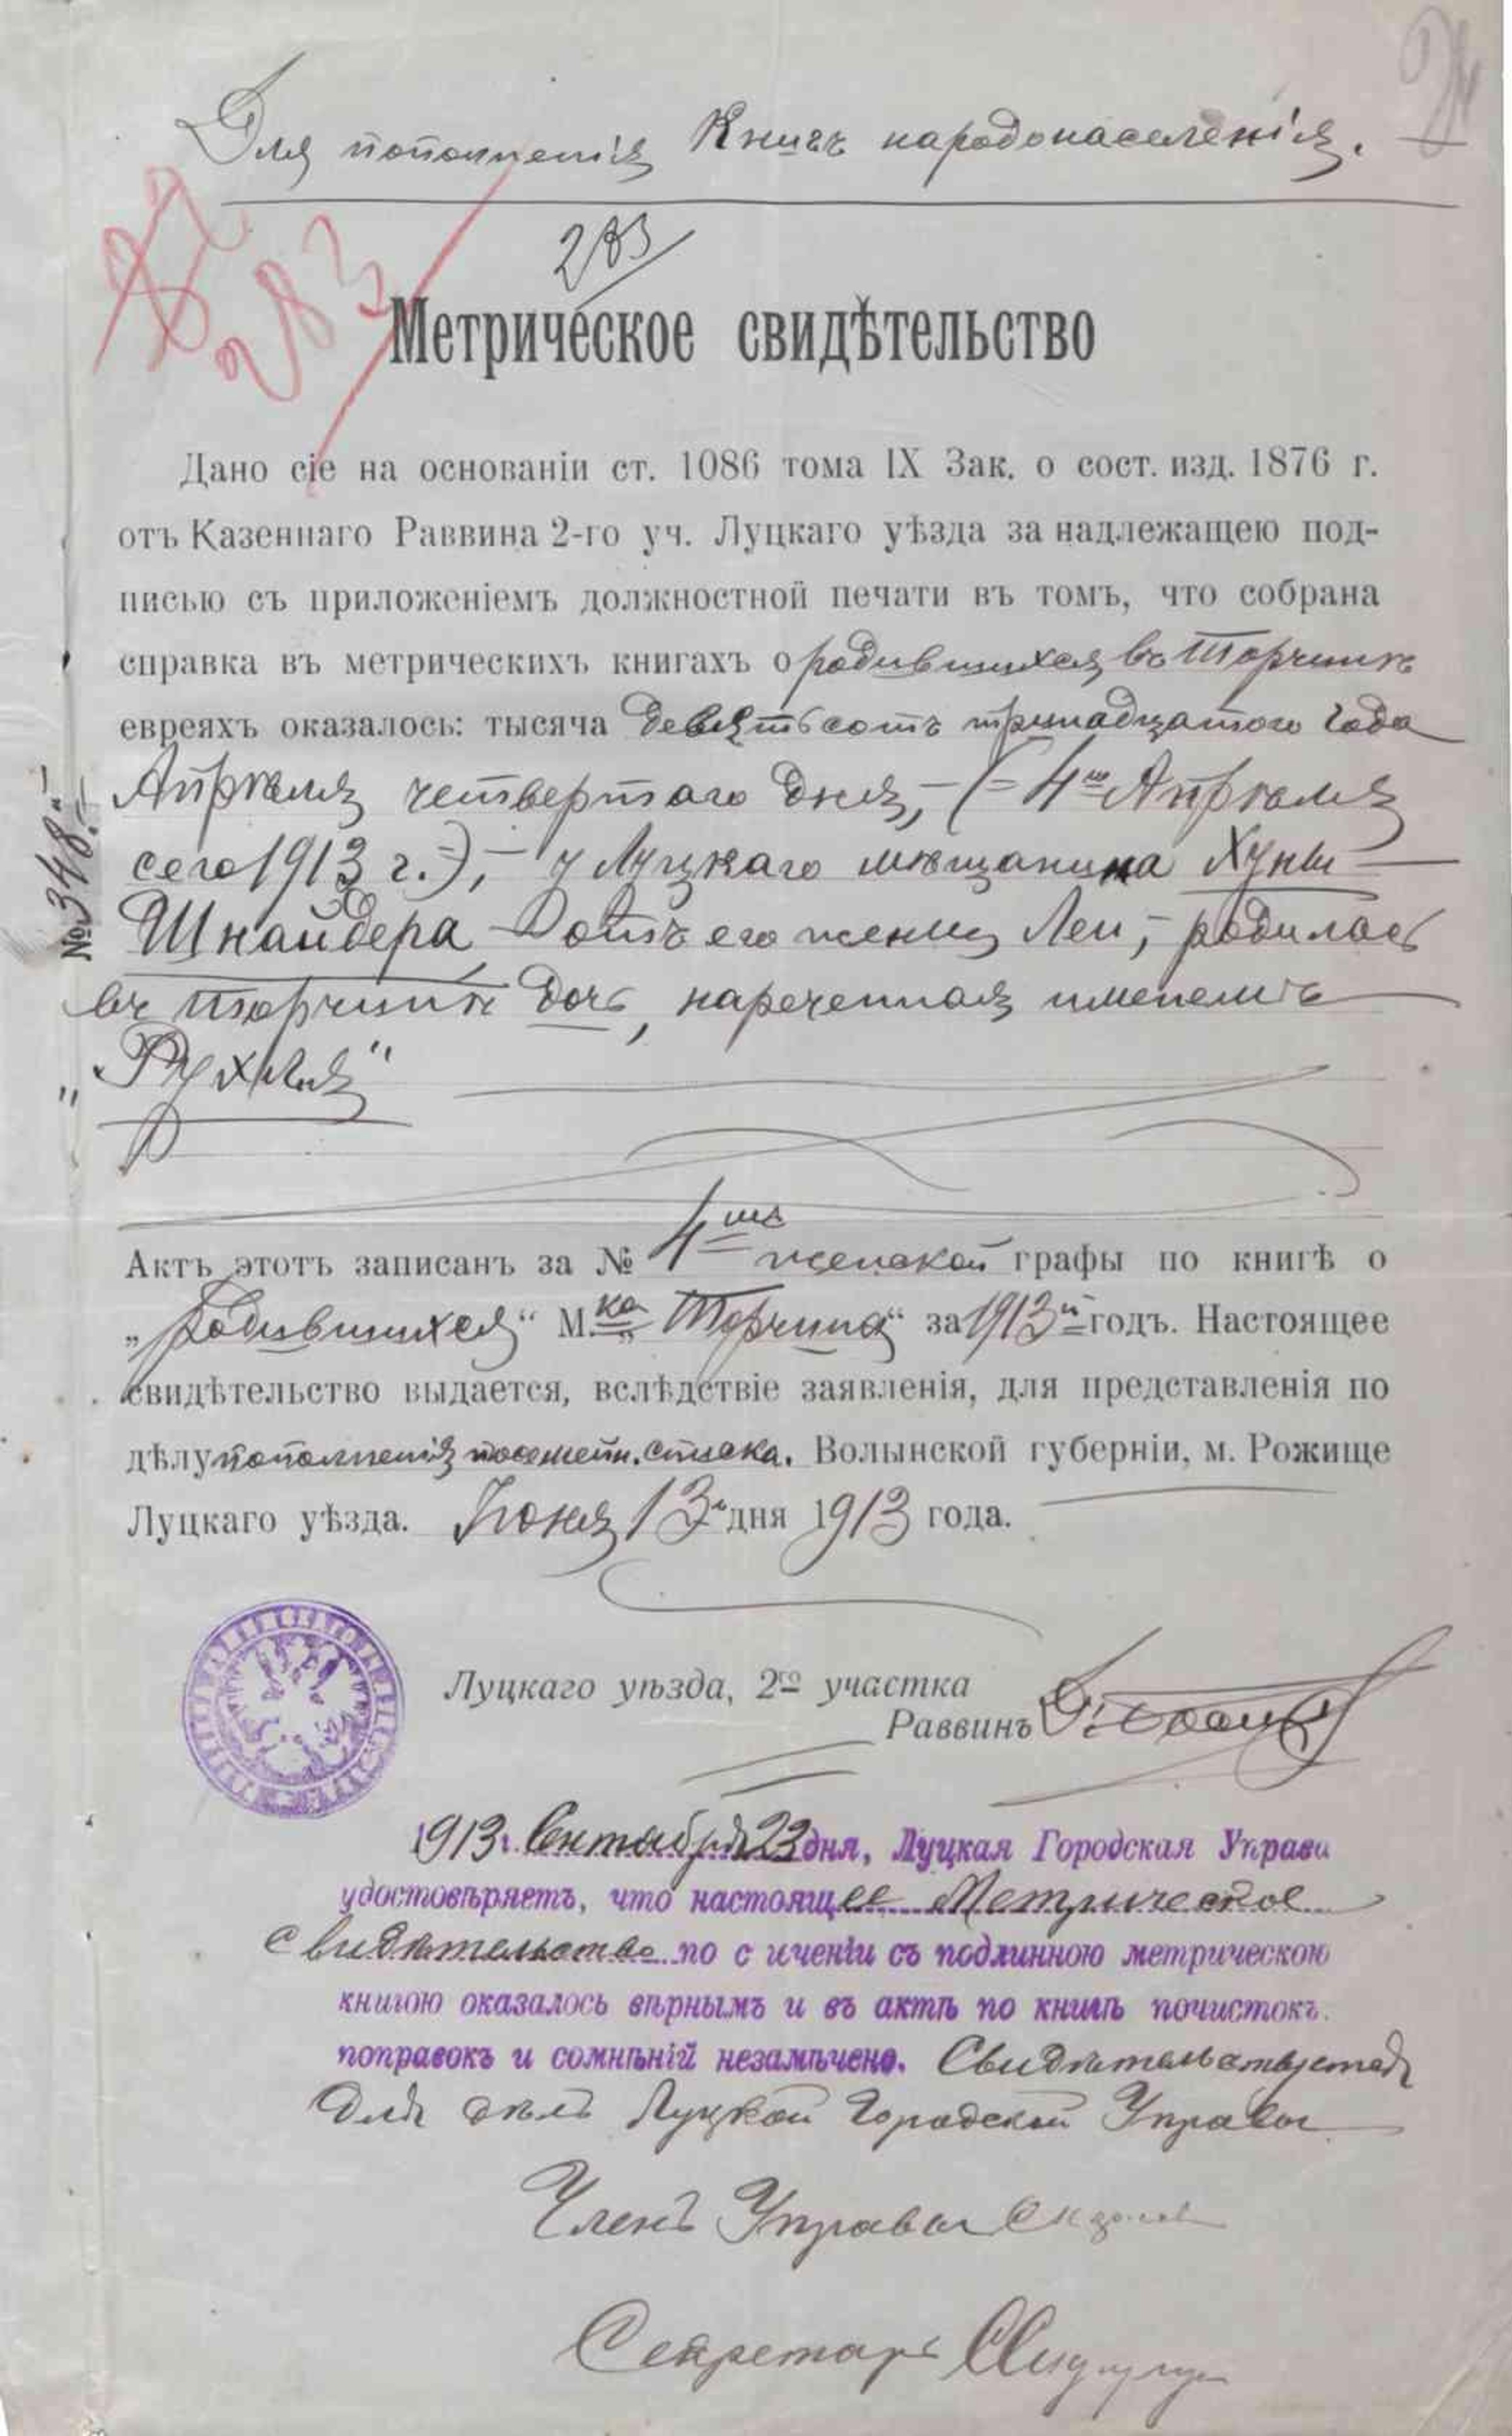 24
Для пополненія Книгъ народонаселенія.
283
283
Метрическое свидѣтельство
Дано сіе на основаніи ст. 1086 тома IX Зак. о сост. изд. 1876 г.
отъ Казеннаго Раввина 2-го уч. Луцкаго уѣзда за надлежащею под-
писью съ приложеніемъ должностной печати въ томъ, что собрана
справка въ метрическихъ книгахъ о родившихся въ Торчинѣ
евреяхъ оказалось: тысяча девятьсотъ тринадцатого года
Апрѣля четвертаго дня, – (= 4го Апрѣля
сего 1913 г.=), – у Луцкаго мѣщанина Хуны —
Шнайдера отъ его жены Леи, – родилась
въ Торчинѣ дочь, нареченная именемъ
„Рухля"
№ 348.
Актъ этотъ записанъ за № 4мъ женской графы по книгѣ о
„родившихся" М.ка „Торчина" за 1913й годъ. Настоящее
свидѣтельство выдается, вслѣдствіе заявленія, для представленія по
дѣлу пополненія посемейн. списка. Волынской губерніи, м. Рожище
Луцкаго уѣзда. Іюня 13 дня 1913 года.
Луцкаго уѣзда, 2го участка
Раввинъ
1913 г. Сентября 23 дня, Луцкая Городская Управа
удостовѣряетъ, что настоящее Метрическое
свидѣтельство по с иченіи съ подлинною метрическою
книгою оказалось вѣрнымъ и въ актѣ по книгѣ почистокъ.
поправокъ и сомнѣній незамѣчено. Свидѣтельствуется
для дѣлъ Луцкой Городской Управы
Членъ Управы
Секретарь